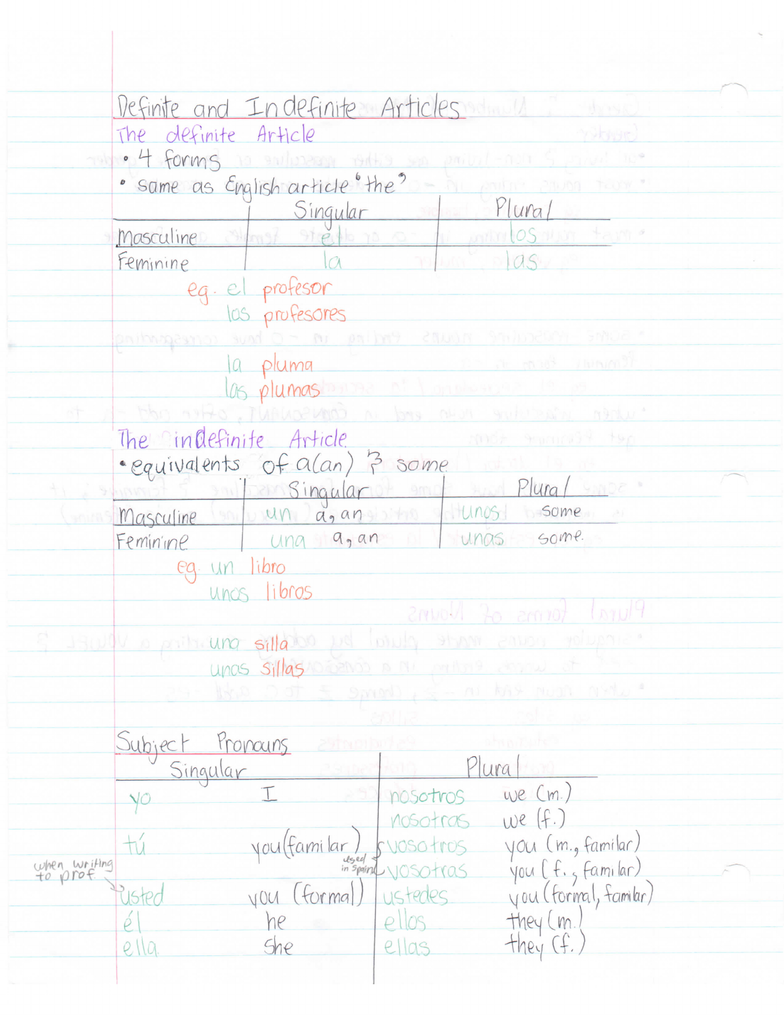 Definite and Indefinite Articles
The definite Article
• 4 forms
• same as English article "the"
Singular Plural
Masculine el los
Feminine la las
eg. el profesor
los profesores
la pluma
las plumas
The indefinite Article
• equivalents of a(an) & some
Singular Plural
Masculine un a, an unos some
Feminine una a, an unas some.
eg. un libro
unos libros
una silla
unas sillas
Subject Pronouns
Singular Plural
yo I nosotros we (m.)
nosotras we (f.)
tú you (familar) vosotros you (m., familar)
used in spain vosotras you (f., familar)
when writing
to prof
usted you (formal) ustedes you (formal, familar)
él he ellos they (m.)
ella she ellas they (f.)